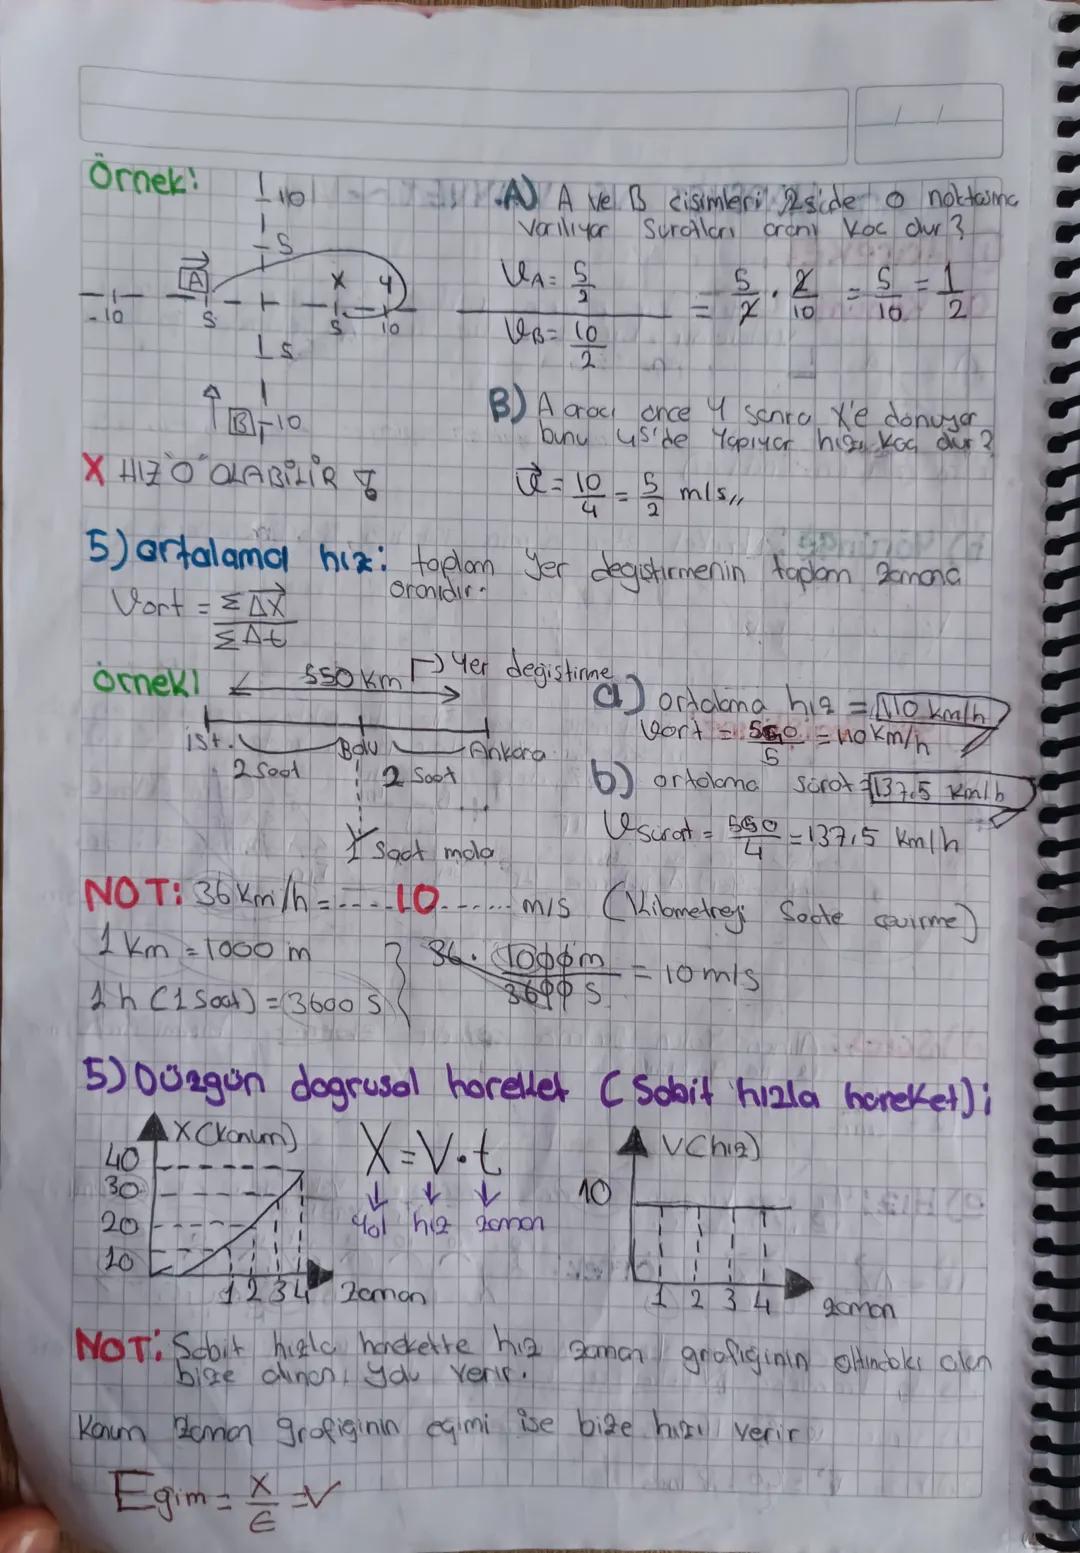 Örnek:
10
A) A ve B cisimleri 2s'de O noktasına
varılıyor Suratları oranı kaç dur?
5
A
X 4
-10 5 5 10
VA = 5/2
VB = 10/2
= 5/2 . 2/10 = 5/10 = 1/2
5
B -10
B) A aracı önce Y sonra X'e dönüyor
bunu 4s'de Yapıyor hızı kaç dur?
X HIZ "O" OLABİLİR
V = 10/4 = 5/2 m/s,,
5) ortalama hız: toplam yer degiştirmenin toplam zamana
oranıdır.
Vort = ΣΔX / ΣΔt
örnek1
550 km → Yer degiştirme
a) ortalama hız = 110 km/h
Vort = 550/5 = 110 km/h
ist. Bolu Ankara
2 saat 2 saat
1 saat mola
b) ortalama sürat = 137,5 km/h
Vsürat = 550/4 = 137,5 km/h
NOT: 36 km/h = ....10...... m/s (Kilometreyi Saate çevirme)
1 km = 1000 m
1 h (1 Saat) = 3600 s
36. 1000m / 3600 s = 10 m/s
5) Düzgün dogrusal hareket (Sabit hızla hareket):
X (Konum)
40
30
20
10
1 2 3 4 zaman
X = V . t
Yol hız zaman
V (hız)
10
1 2 3 4 zaman
NOT: Sabit hızla harekette hız zaman grafiginin altındaki alan
bize alınan yolu verir.
Konum zaman grafiginin egimi ise bize hızı verir
Egim = X/t = V